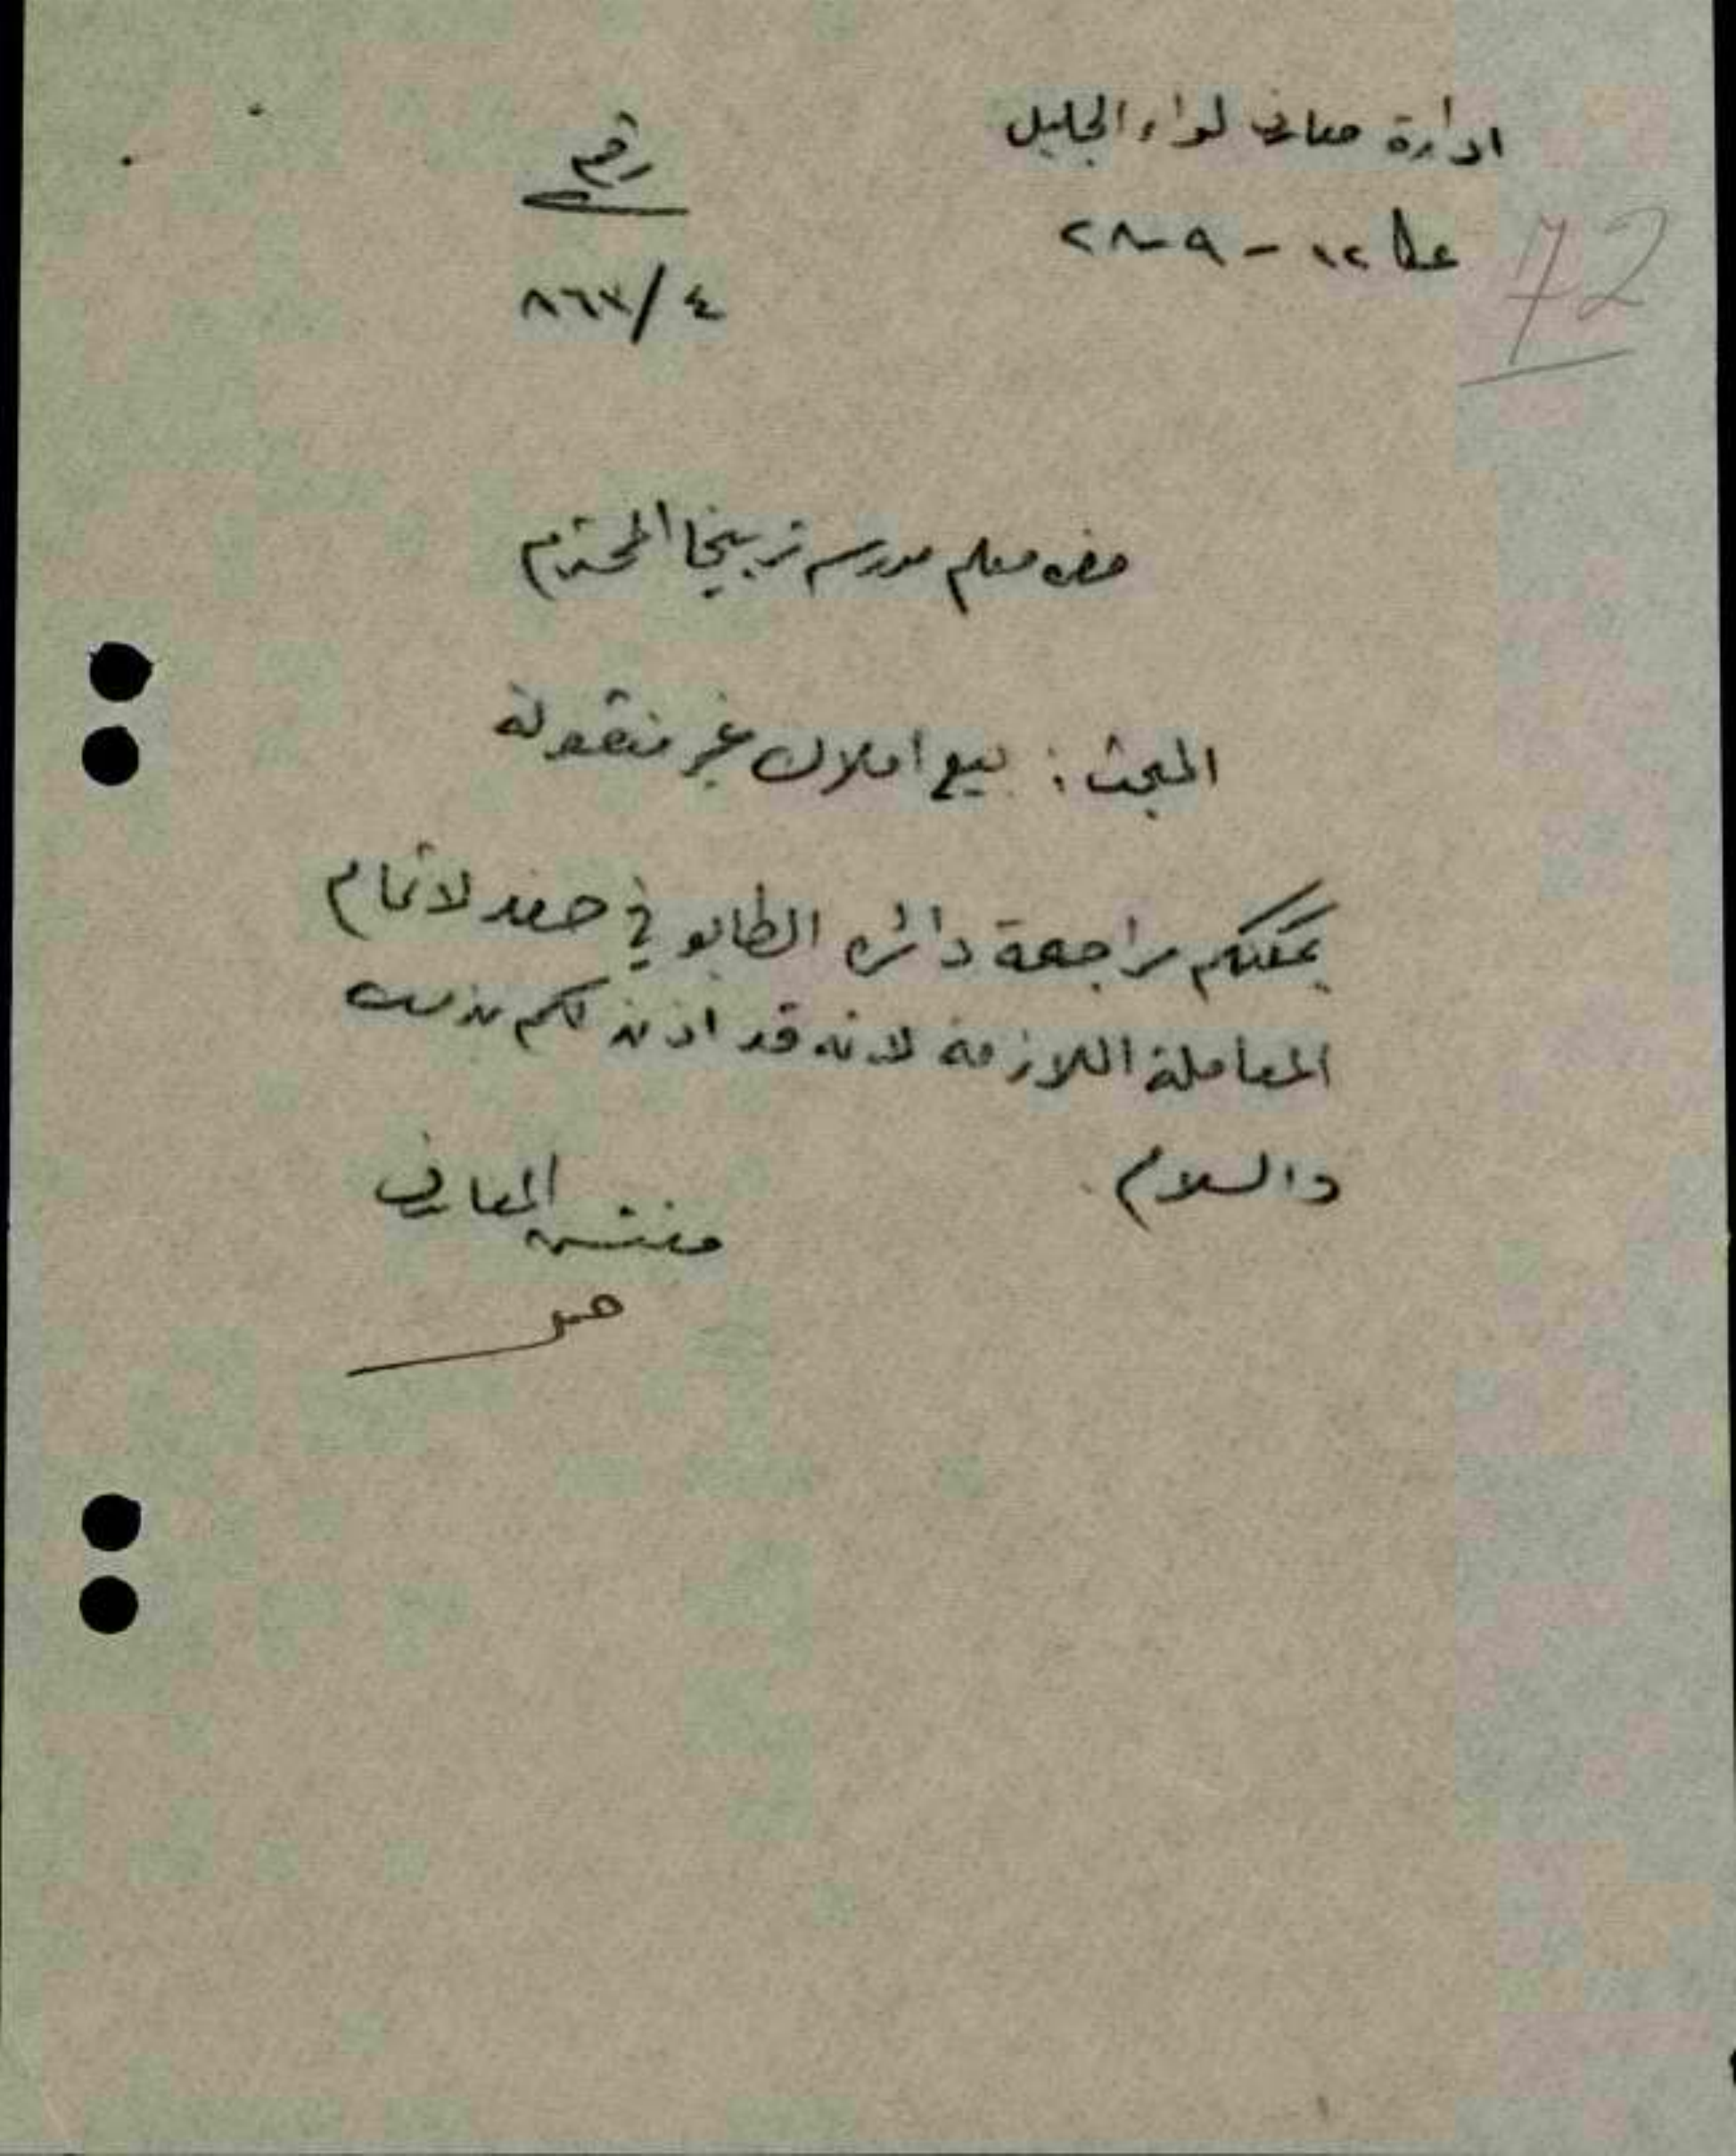 ادارة معارف لواء الجليل
رقم
عكا ١٢ - ٩ - ٢٨
72
٨٦٧/٤
حضرة معلم مدرسة تربيخا المحترم
المبحث : بيع املاك غير منقولة
يمكنكم مراجعة دائرة الطابو في صفد لاتمام
المعاملة اللازمة لانه قد اذن لكم بذلك
والسلام .
مفتش المعارف